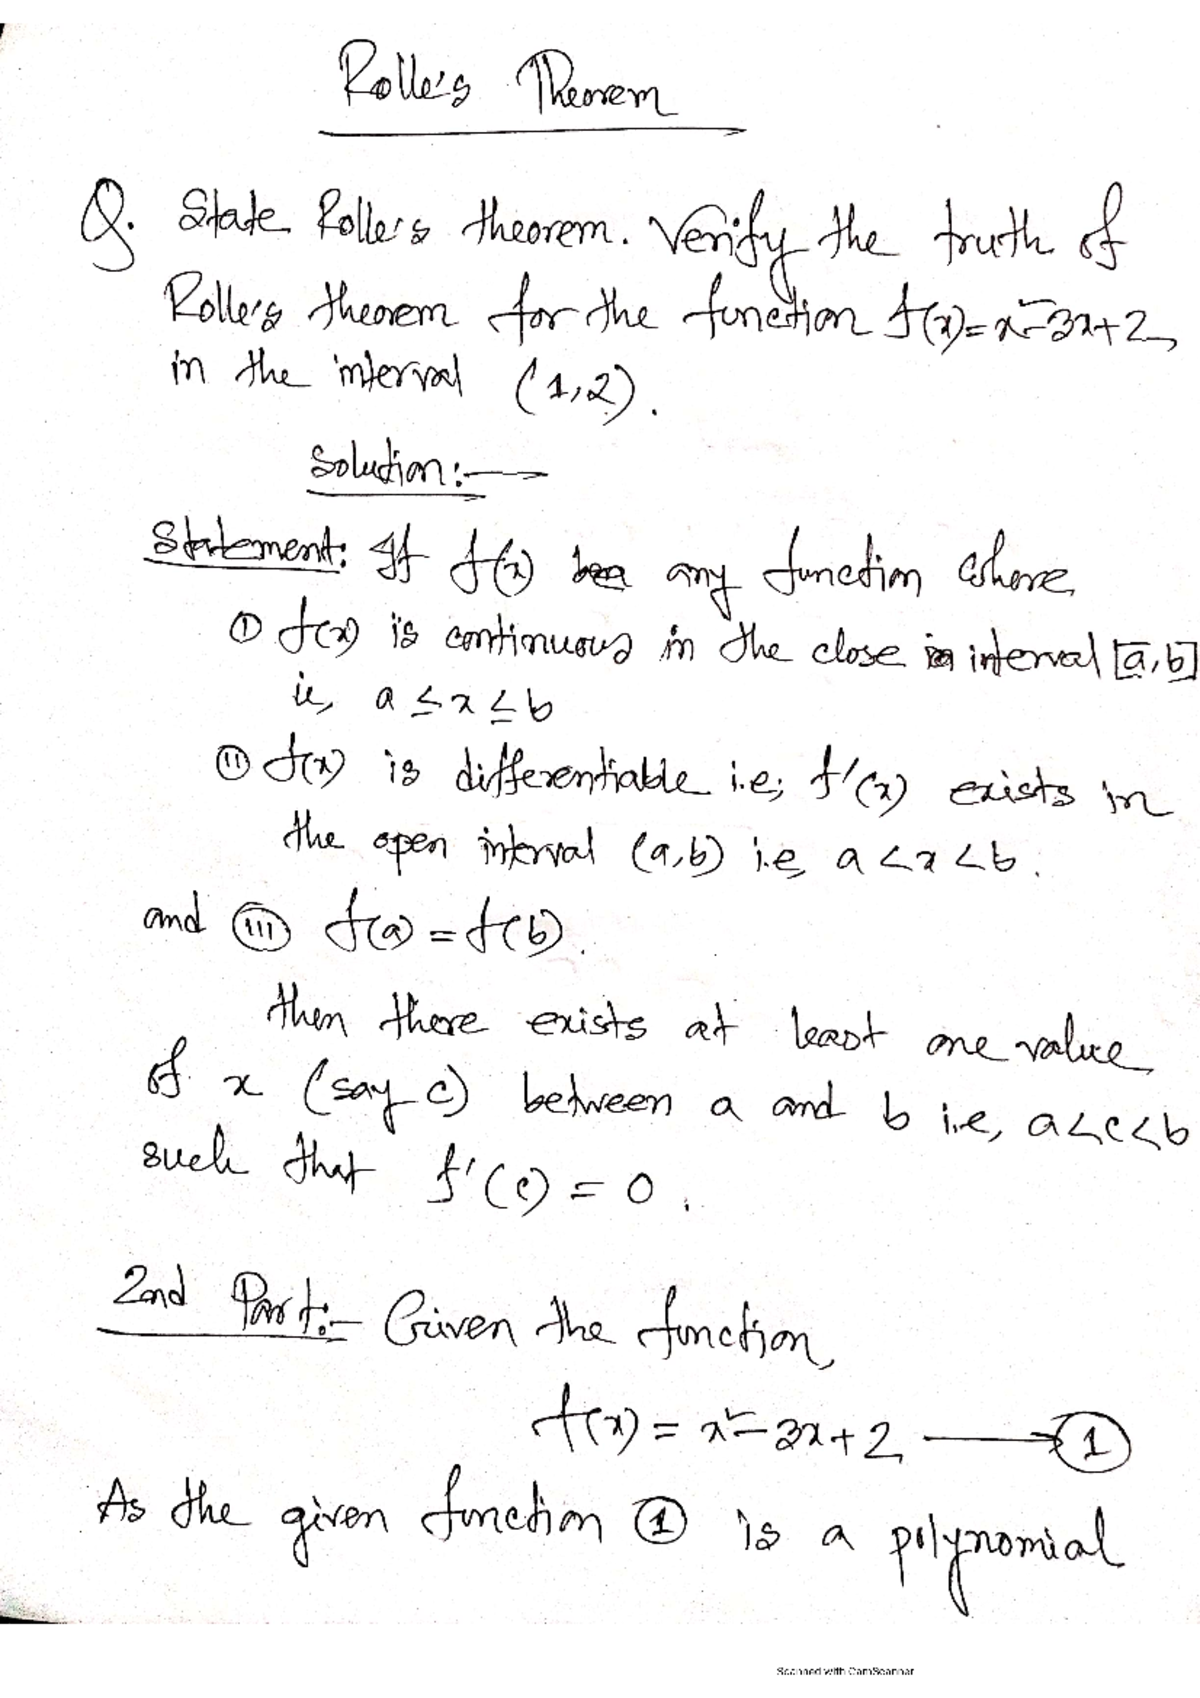 Rolle's Theorem
Q. State Rolle's theorem. Verify the truth of
Rolle's theorem for the function f(x)=x²-3x+2,
in the interval (1,2).
Solution:-
Statement: If f(x) be any function where
① f(x) is continuous in the close interval [a,b]
ie, a ≤ x ≤ b
ⓘⓘ f(x) is differentiable i.e; f'(x) exists in
the open interval (a,b) i.e, a < x < b.
and ⓘⓘⓘ f(a) = f(b).
then there exists at least one value
of x (say c) between a and b i.e, a<c<b
such that f'(c) = 0.
2nd Part:- Given the function,
f(x) = x²-3x+2 → ①
As the given function ① is a polynomial
Scanned with CamScanner